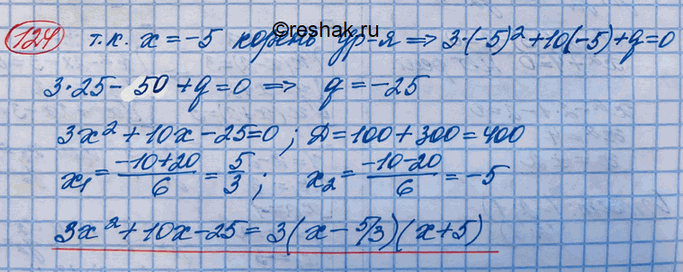 ©reshak.ru
124 т.к. x = -5 корень ур-я ⇒ 3·(-5)²+10(-5)+q=0
3·25 - 50 + q = 0 ⇒ q = -25
3x² + 10x - 25 = 0 ; Д = 100 + 300 = 400
x₁ = (-10+20)/6 = 5/3 ; x₂ = (-10-20)/6 = -5
3x² + 10x - 25 = 3(x - 5/3)(x+5)